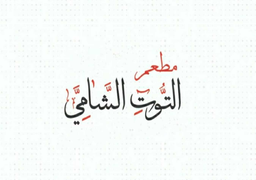 مطعم
التُّوتِ الشَّامِيَّ